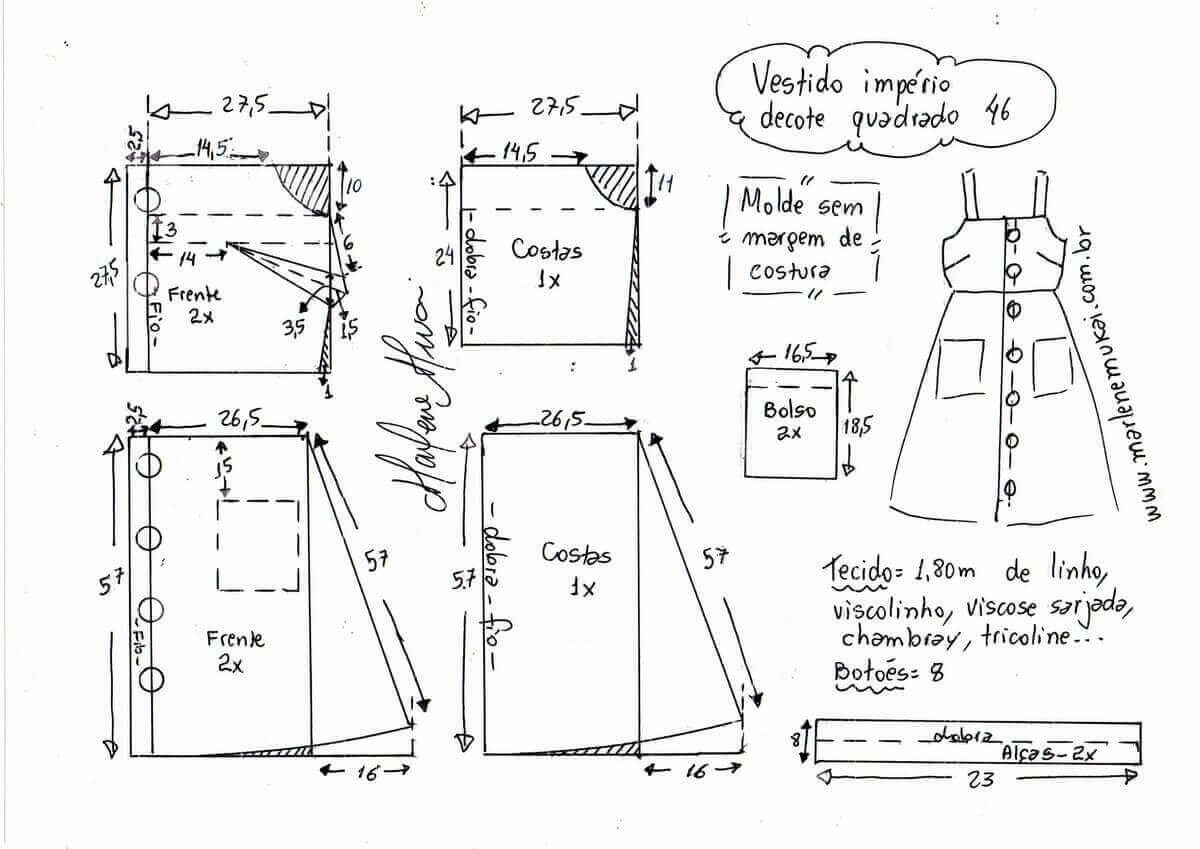 Vestido império
decote quadrado 46
27,5
2,5
14,5
10
3
6
14
27,5
Frente
2x
-Fio-
3,5
1,5
1
27,5
14,5
11
24
-dobra-fio-
Costas
1x
1
Molde sem
margem de
costura
www.marlenemukai.com.br
16,5
Bolso
2x
18,5
2,5
26,5
15
57
57
-Fio-
Frente
2x
16
26,5
57
57
-dobra-fio-
Costas
1x
16
Tecido= 1,80m de linho,
viscolinho, viscose sarjada,
chambray, tricoline...
Botões= 8
8
dobra
Alças-2x
23